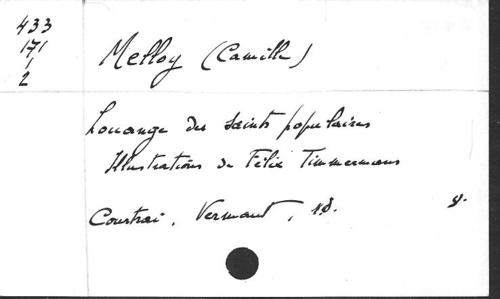 433
171
1
2
Melloy (Camille)
Louange des saints populaires
Illustrations de Félix Timmermans
Courtrai, Vermaut, s.d. 8.